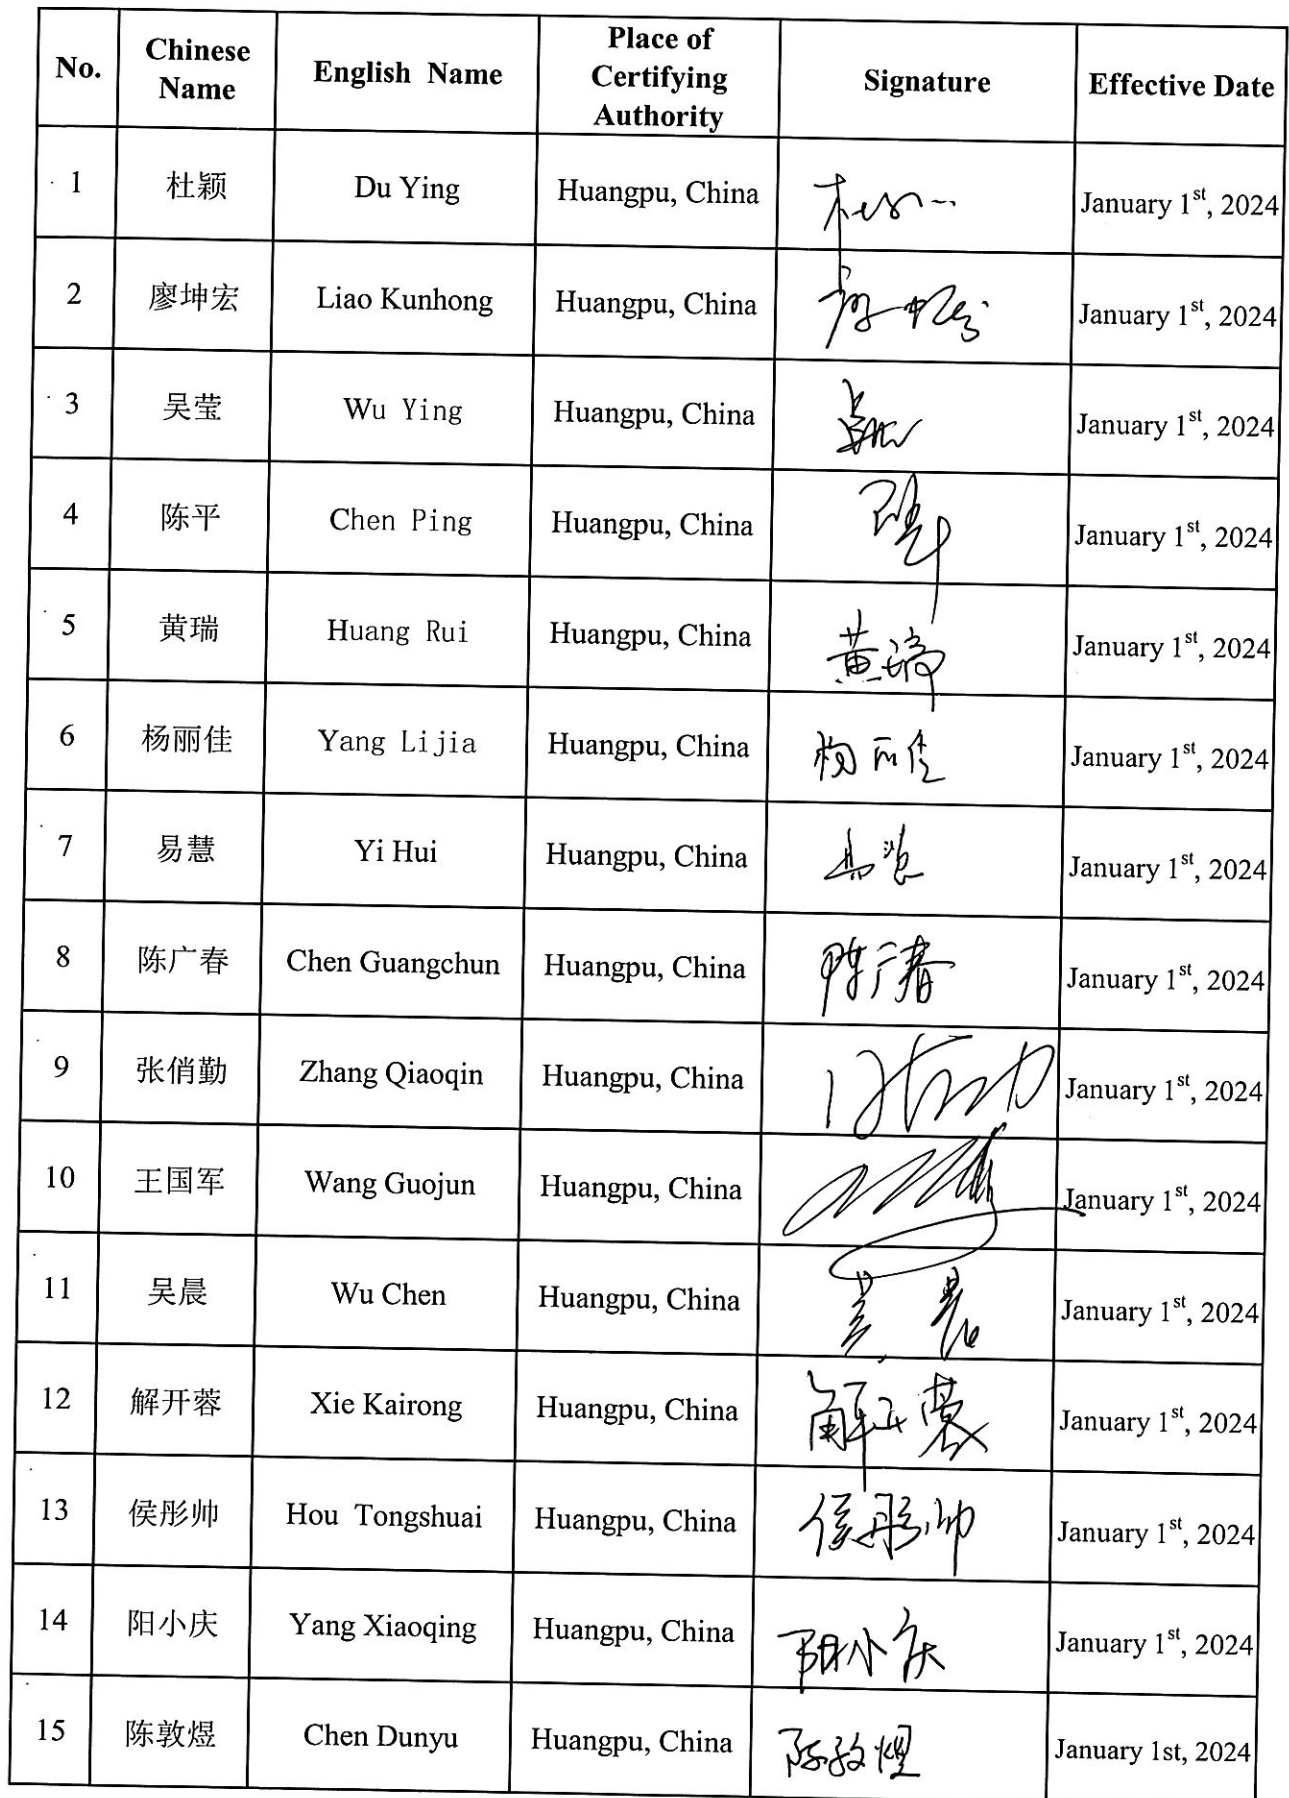 No. Chinese Name English Name Place of Certifying Authority Signature Effective Date
1 杜颖 Du Ying Huangpu, China January 1st, 2024
2 廖坤宏 Liao Kunhong Huangpu, China January 1st, 2024
3 吴莹 Wu Ying Huangpu, China January 1st, 2024
4 陈平 Chen Ping Huangpu, China January 1st, 2024
5 黄瑞 Huang Rui Huangpu, China 黄瑞 January 1st, 2024
6 杨丽佳 Yang Lijia Huangpu, China 杨丽佳 January 1st, 2024
7 易慧 Yi Hui Huangpu, China January 1st, 2024
8 陈广春 Chen Guangchun Huangpu, China 陈广春 January 1st, 2024
9 张俏勤 Zhang Qiaoqin Huangpu, China January 1st, 2024
10 王国军 Wang Guojun Huangpu, China January 1st, 2024
11 吴晨 Wu Chen Huangpu, China January 1st, 2024
12 解开蓉 Xie Kairong Huangpu, China 解开蓉 January 1st, 2024
13 侯彤帅 Hou Tongshuai Huangpu, China 侯彤帅 January 1st, 2024
14 阳小庆 Yang Xiaoqing Huangpu, China 阳小庆 January 1st, 2024
15 陈敦煜 Chen Dunyu Huangpu, China 陈敦煜 January 1st, 2024